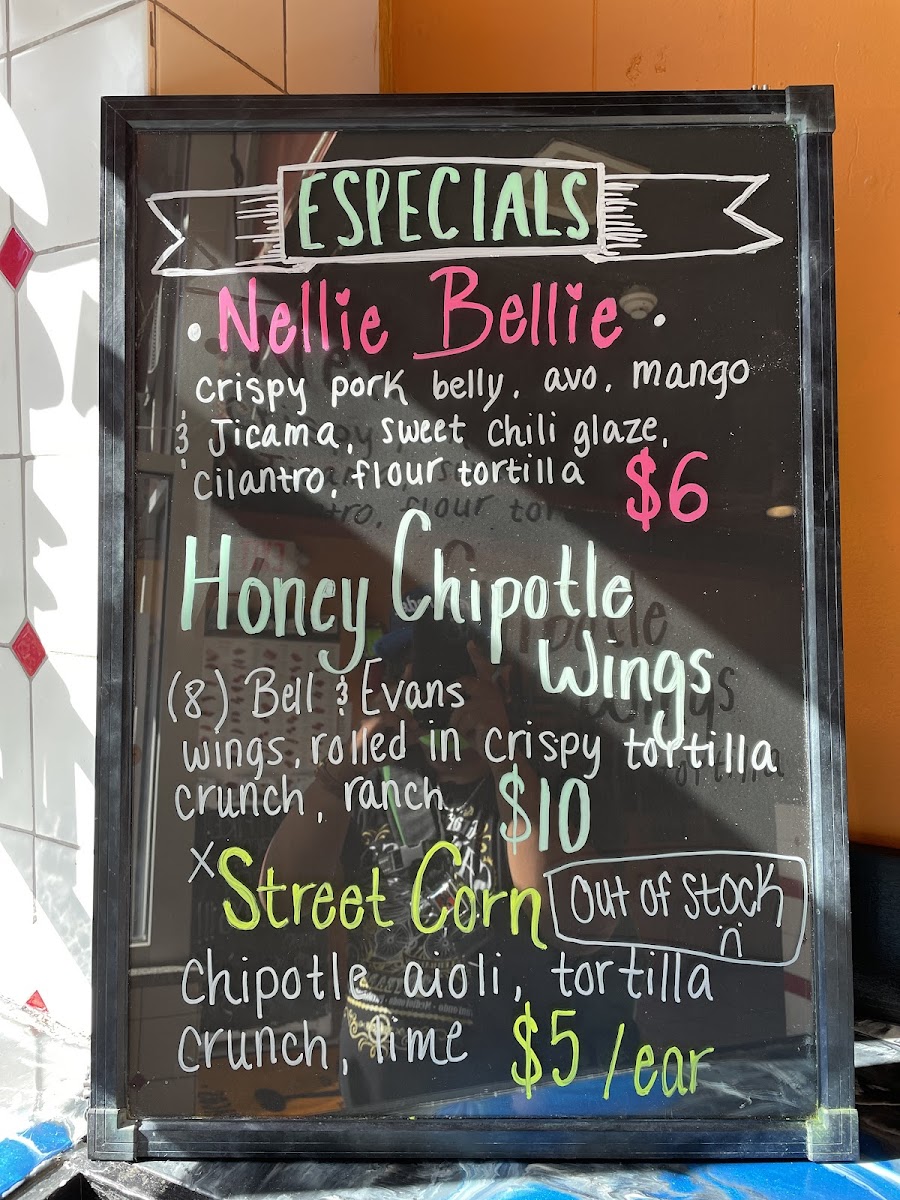 ESPECIALS
• Nellie Bellie •
crispy pork belly, avo, mango
& Jicama, sweet chili glaze,
cilantro, flour tortilla $6
Honey Chipotle
Wings
(8) Bell & Evans
wings, rolled in crispy tortilla
crunch, ranch $10
x Street Corn Out of Stock :(
chipotle aioli, tortilla
crunch, lime $5 / ear